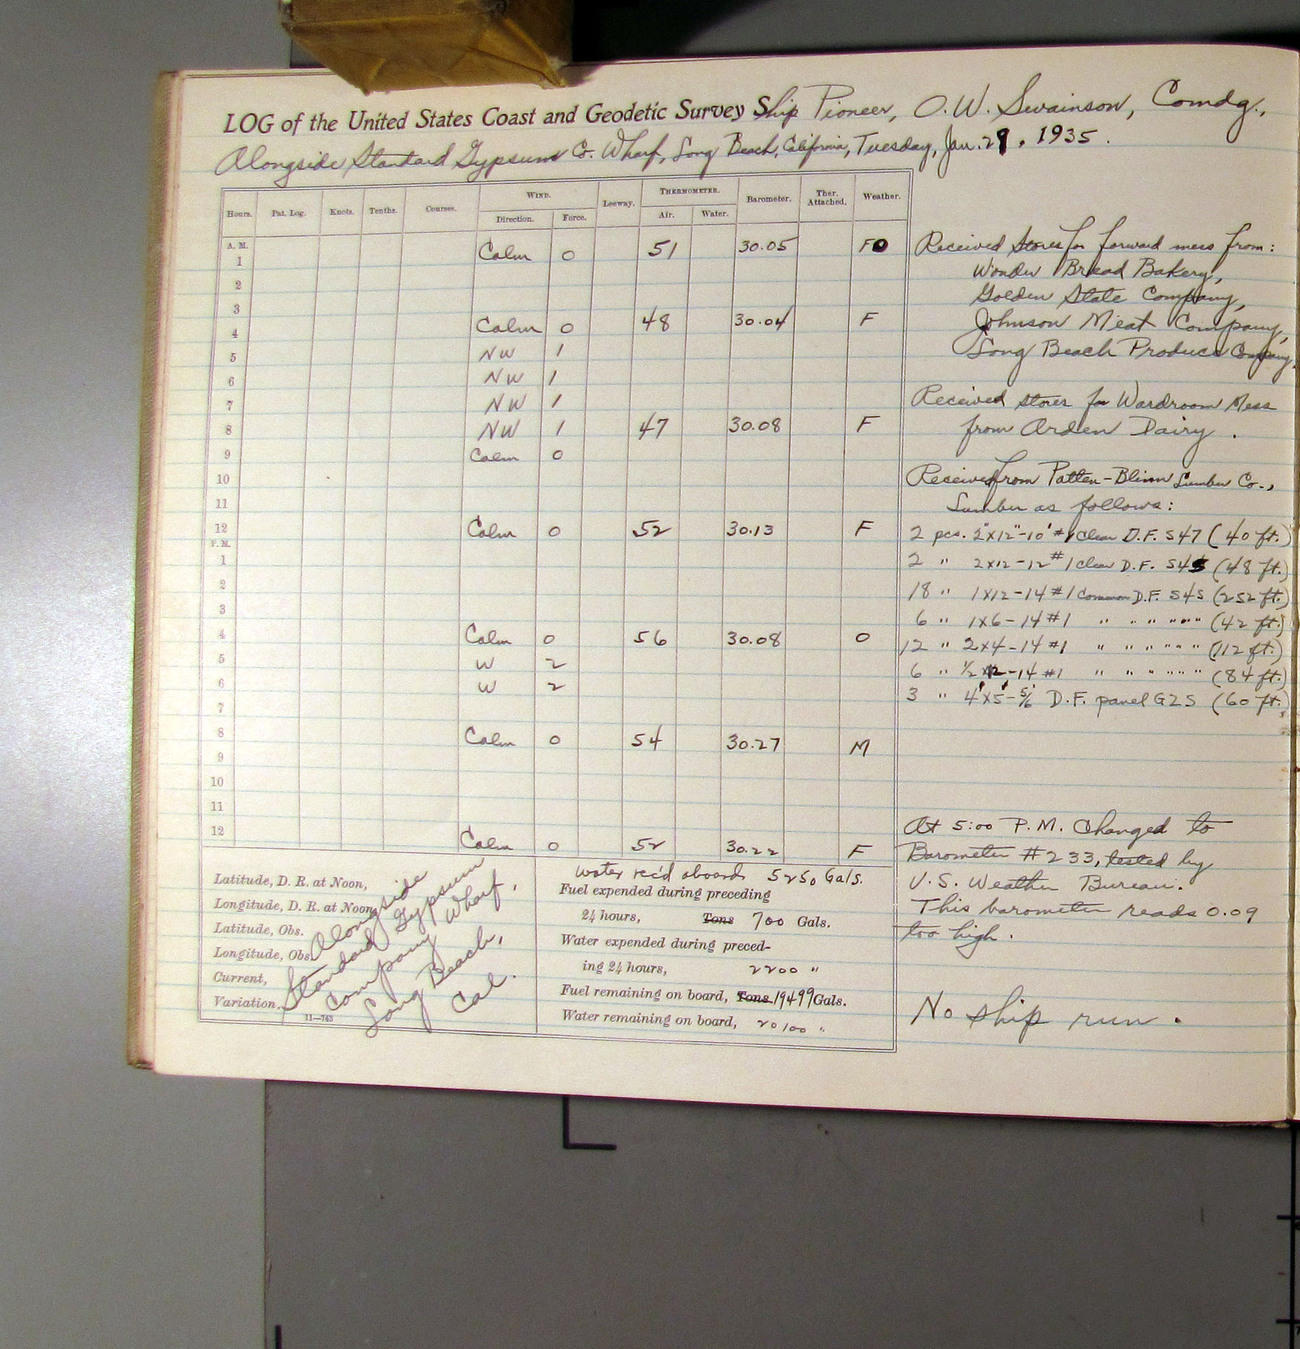 LOG of the United States Coast and Geodetic Survey Ship Pioneer, O.W. Swainson, Comdg.,
Alongside Standard Gypsum Co. Wharf, Long Beach, California, Tuesday, Jan. 29, 1935.
Hours. Pat. Log. Knots. Tenths. Courses. WIND. Leeway. THERMOMETER. Barometer. Ther. Attached. Weather.
Direction. Force. Air. Water.
A. M.
1 Calm 0 51 30.05 FO
2
3
4 Calm 0 48 30.04 F
5 NW 1
6 NW 1
7 NW 1
8 NW 1 47 30.08 F
9 Calm 0
10
11
12 Calm 0 52 30.13 F
P. M.
1
2
3
4 Calm 0 56 30.08 O
5 W 2
6 W 2
7
8 Calm 0 54 30.27 M
9
10
11
12 Calm 0 52 30.22 F
Received stores for forward mess from:
Wonder Bread Bakery,
Golden State Company,
Johnson Meat Company,
Long Beach Produce Company.
Received stores for Wardroom Mess
from Arden Dairy.
Received from Patten-Blinn Lumber Co.,
Lumber as follows:
2 pcs. 2"x12"-10' #1 Clear D.F. S4? (40 ft.)
2 " 2x12-12 #1 clear D.F. S4S (48 ft.)
18 " 1x12-14 #1 common D.F. S4S (252 ft.)
6 " 1x6-14 #1 " " " " " (42 ft.)
12 " 2x4-14 #1 " " " " " (112 ft.)
6 " 1/2 x12-14 #1 " " " " " (84 ft.)
3 " 4'x5'-5/16 D.F. panel G2S (60 ft.)
At 5:00 P.M. Changed to
Barometer #233, tested by
U.S. Weather Bureau.
This barometer reads 0.09
too high.
No ship run.
Latitude, D. R. at Noon,
Longitude, D. R. at Noon,
Latitude, Obs.
Longitude, Obs.
Current,
Variation,
11—763
Alongside
Standard Gypsum
Company Wharf,
Long Beach,
Cal.
water rec'd aboard 5250 Gals.
Fuel expended during preceding
24 hours, Tons 700 Gals.
Water expended during preced-
ing 24 hours, 2200 "
Fuel remaining on board, Tons 19499 Gals.
Water remaining on board, 20100 "